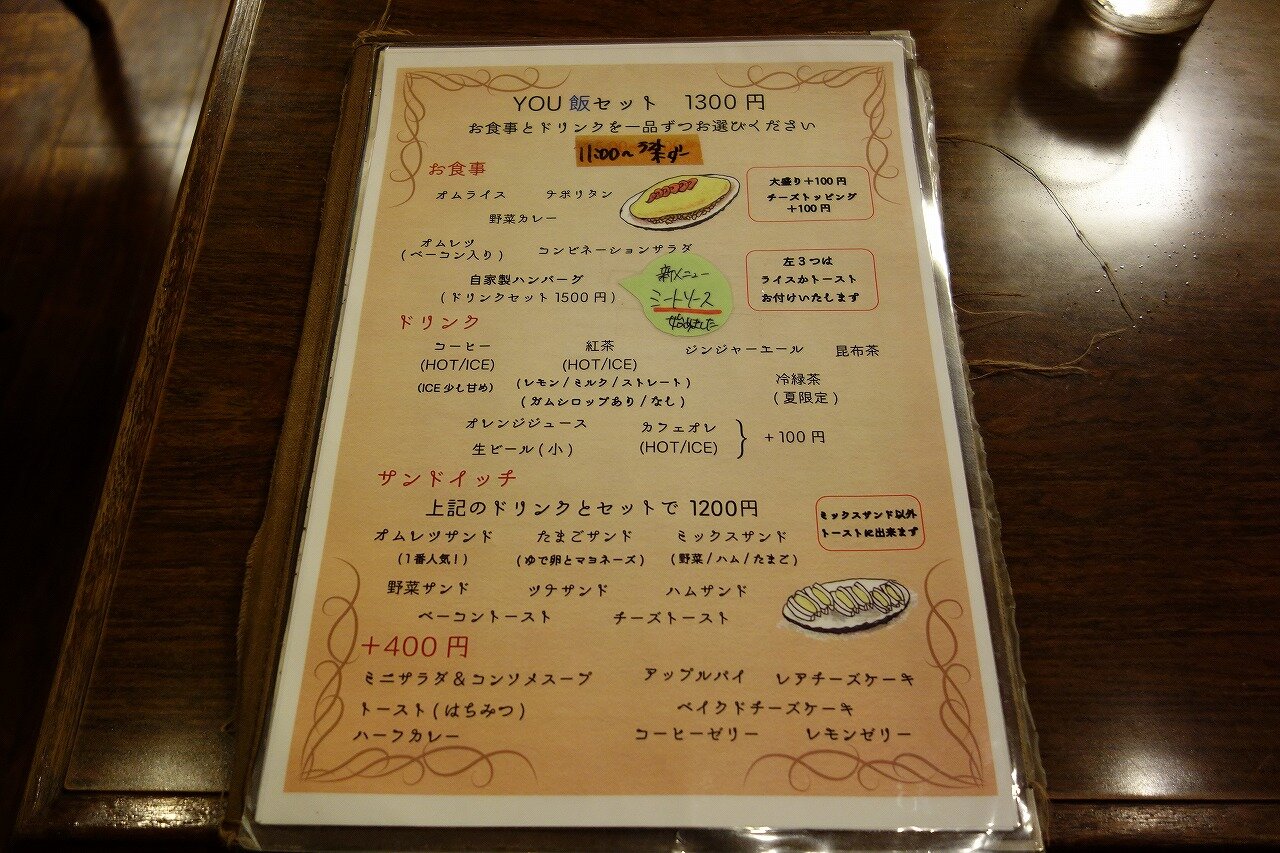 YOU 飯セット 1300 円
お食事とドリンクを一品ずつお選びください
11:00~
お食事
オムライス ナポリタン
野菜カレー
大盛り+100円
チーズトッピング
+100円
オムレツ
(ベーコン入り)
コンビネーションサラダ
自家製ハンバーグ
(ドリンクセット 1500 円)
左3つは
ライスかトースト
お付けいたします
新メニュー
ミートソース
始めました
ドリンク
コーヒー
(HOT/ICE)
(ICE 少し甘め)
紅茶
(HOT/ICE)
(レモン/ミルク/ストレート)
(ガムシロップあり/なし)
ジンジャーエール 昆布茶
冷緑茶
(夏限定)
オレンジジュース
生ビール(小)
カフェオレ
(HOT/ICE)
+100 円
サンドイッチ
上記のドリンクとセットで 1200円
ミックスサンド以外
トーストに出来ます
オムレツサンド たまごサンド ミックスサンド
(1番人気!) (ゆで卵とマヨネーズ) (野菜/ハム/たまご)
野菜サンド ツナサンド ハムサンド
ベーコントースト チーズトースト
+400 円
ミニサラダ&コンソメスープ アップルパイ レアチーズケーキ
トースト(はちみつ) ベイクドチーズケーキ
ハーフカレー コーヒーゼリー レモンゼリー